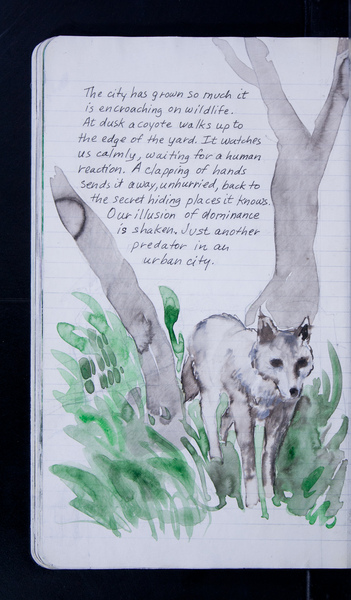 The city has grown so much it
is encroaching on wildlife.
At dusk a coyote walks up to
the edge of the yard. It watches
us calmly, waiting for a human
reaction. A clapping of hands
sends it away, unhurried, back to
the secret hiding places it knows.
Our illusion of dominance
is shaken. Just another
predator in an
urban city.